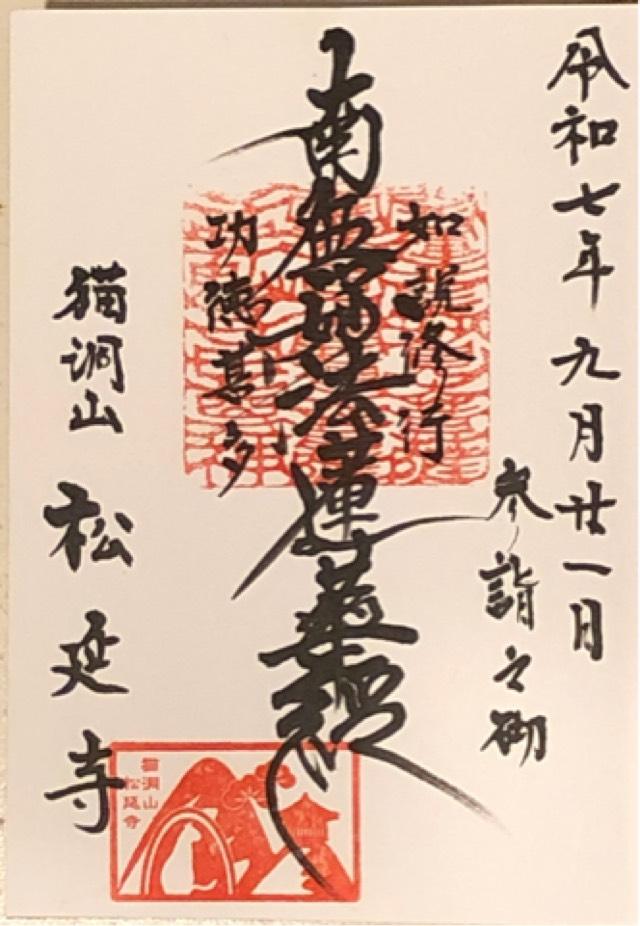 令和七年九月廿一日
参詣之砌
如説修行
南無妙法蓮華経
功徳甚多
猫洞山 松延寺
猫洞山
松延寺